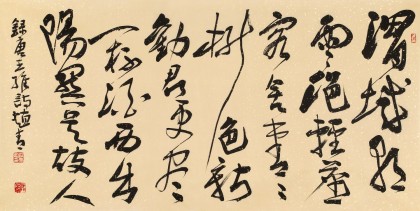 渭城朝
雨浥輕塵
客舍青々
柳色新
勸君更盡
一杯酒西出
陽關无故人
錄唐王維詩